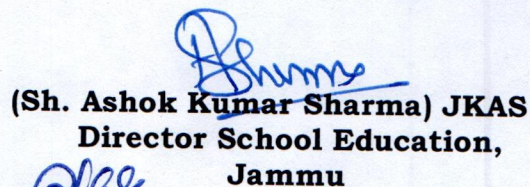 (Sh. Ashok Kumar Sharma) JKAS
Director School Education,
Jammu